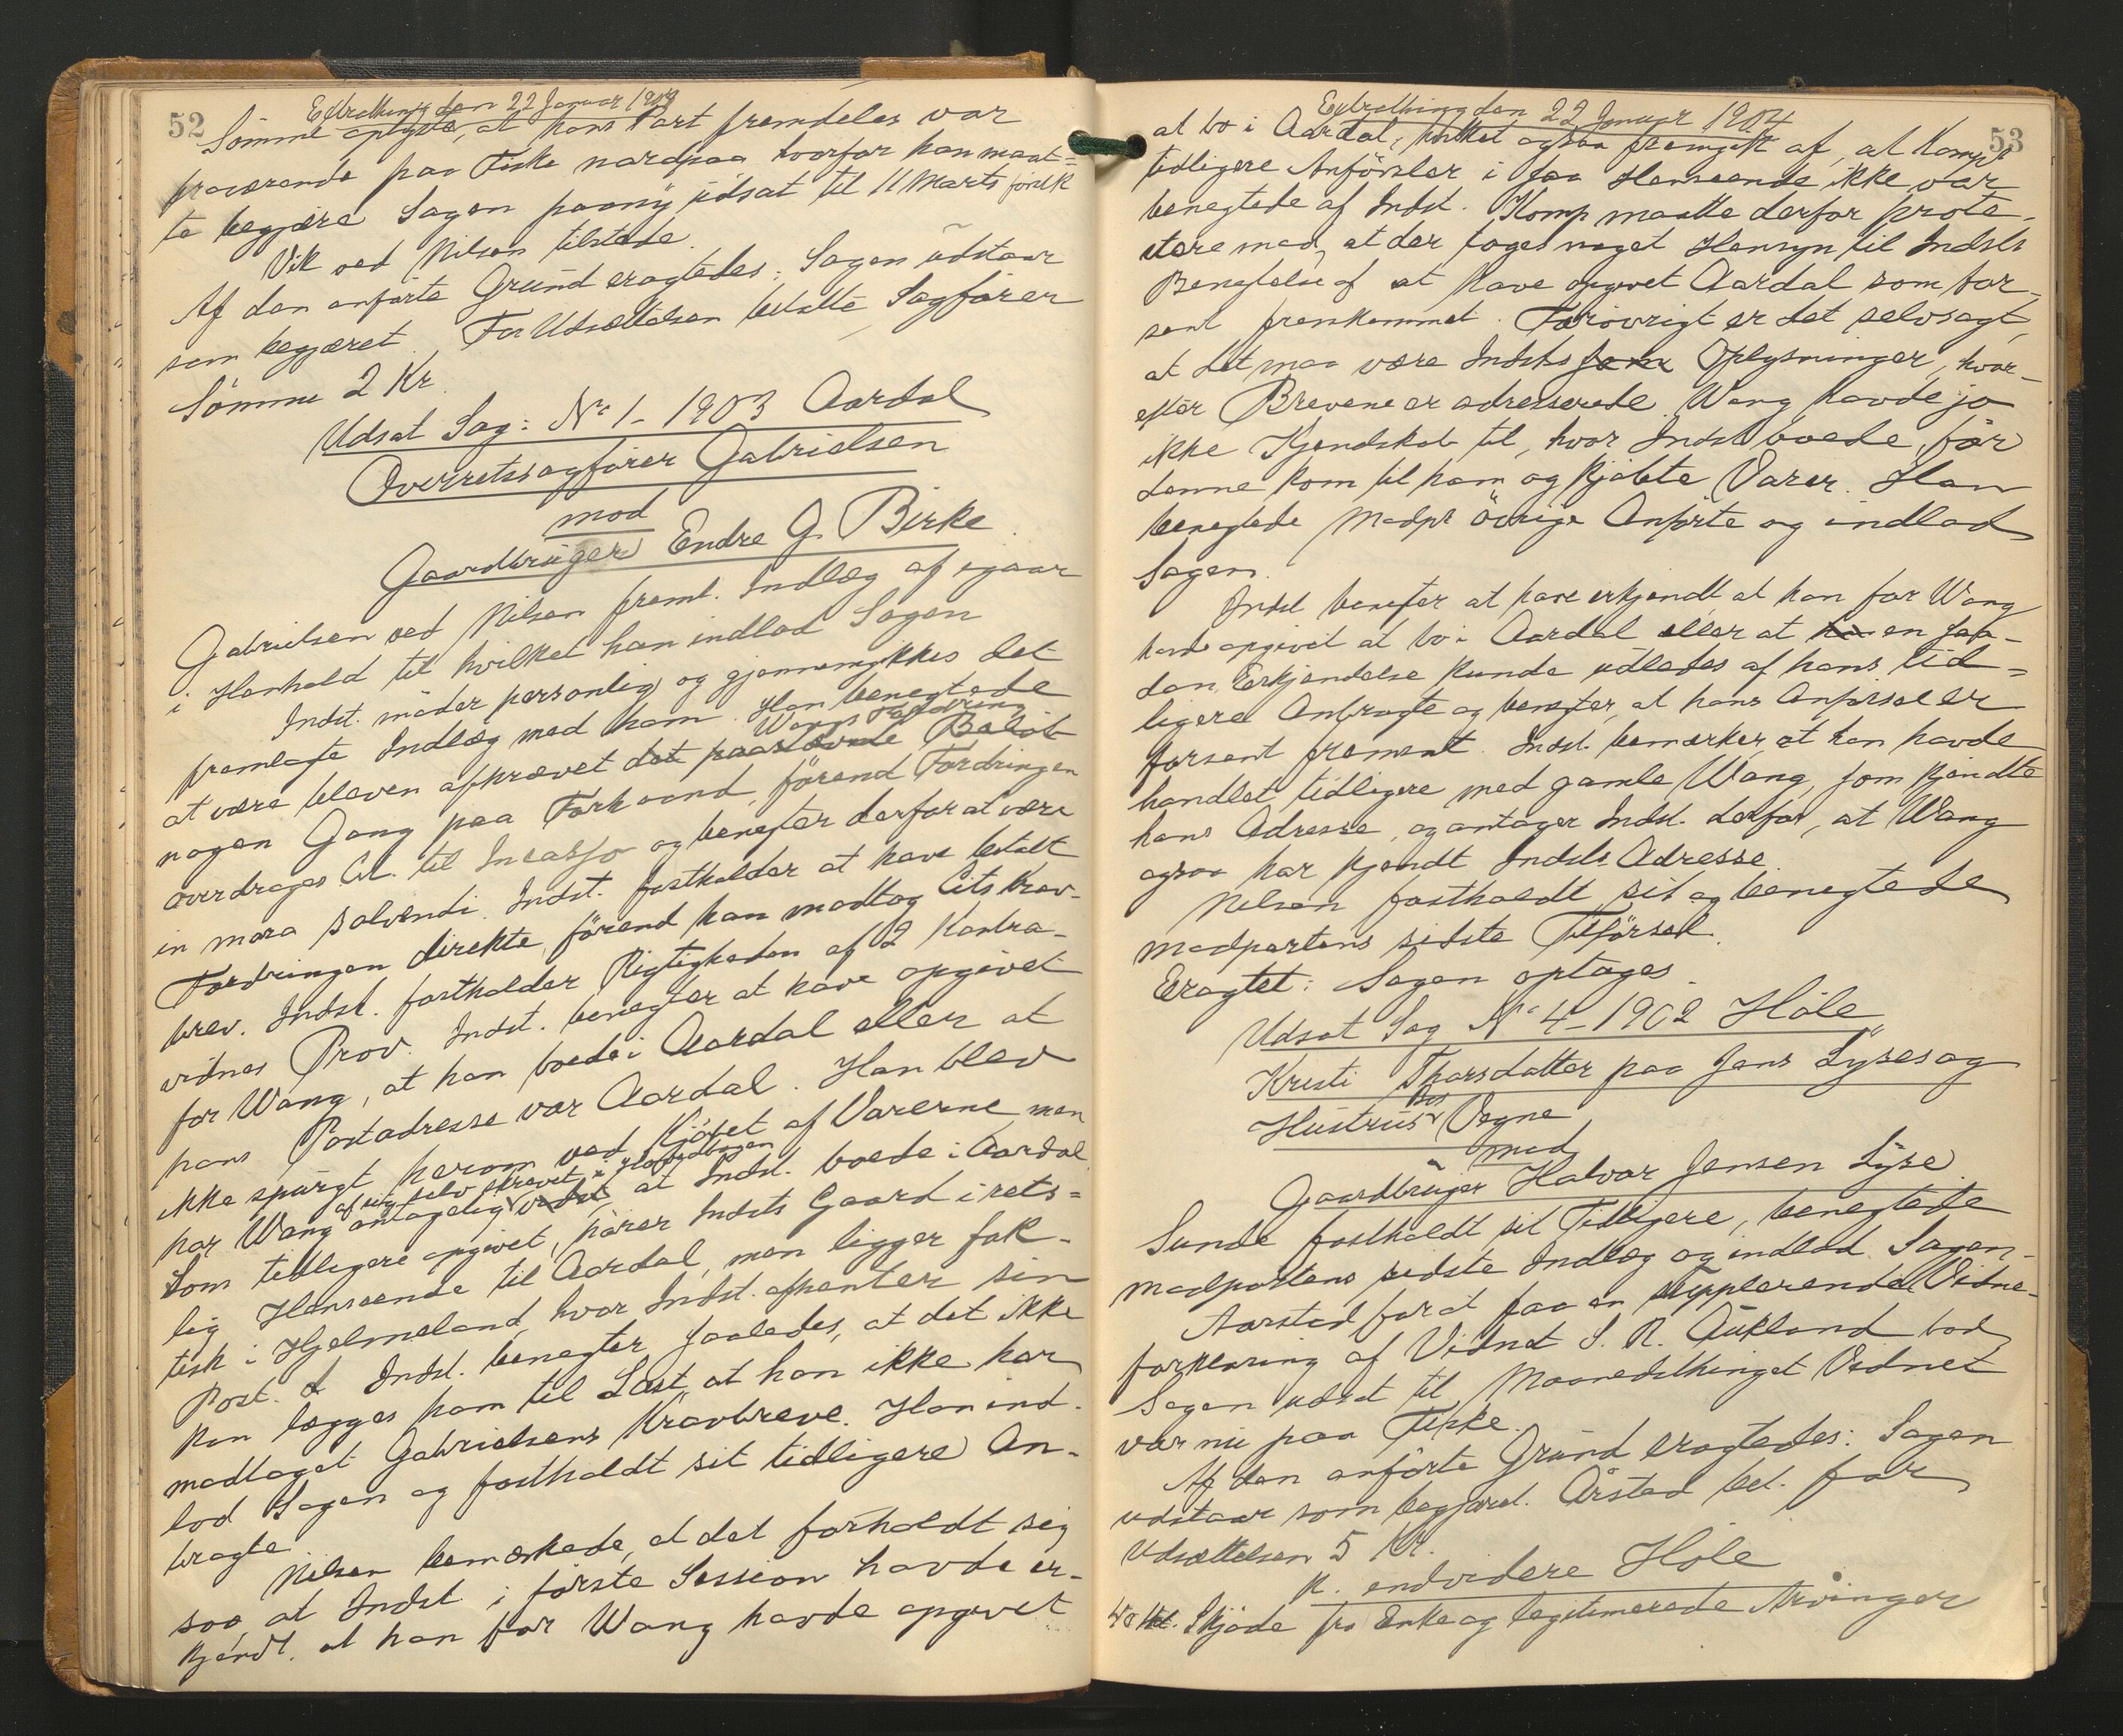 52
Extrathing den 22 Januar 1904
Sømme oplyste, at hans Part fremdeles var
fraværende paa Fiske nordpaa hvorfor han maat=
te begjære Sagen paany udsat til 11 Marts førstk
Vik ved Nilsen tilstede.
Af den anførte Grund eragtedes: Sagen udstaar
som begjæret. For Udsættelsen betalte Sagfører
Sømme 2 Kr.
Udsat Sag: No 1 - 1903 Aardal
Overretssagfører Gabrielsen
mod
Gaardbruger Endre G. Birke.
Gabrielsen ved Nilsen freml. Indlæg af igaar
i Henhold til hvilket han indlod Sagen
Indst. møder personlig og gjennemgikkes det
fremlagte Indlæg med ham. Han benegtede
at være bleven afkrævet det paastævnte Beløb Wangs Fordring
nogen Gang paa Forhaand, førend Fordringen
overdroges Cit. til Incasso og benegter derfor at være
in mora solvendi. Indst. fastholder at have betalt
Fordringen direkte, førend han modtog Cits Krav-
brev. Indst. fastholder Rigtigheden af 2 Kontra-
vidnes Prov. Indst. benegter at have opgivet
for Wang, at han boede i Aardal eller at
hans Postadresse var Aardal. Han blev
ikke spurgt herom ved Kjøbet af Varerne, men
har Wang antagelig af sig selv skrevet i Hovedbogen vidst, at Indst. boede i Aardal
Som tidligere opgivet, hører Indsts Gaard i rets=
lig Henseende til Aardal, men ligger fak-
tisk i Hjelmeland, hvor Indst. afhenter sin
Post. Indst. benegter saaledes, at det ikke
kan lægges ham til Last, at han ikke har
modtaget Gabrielsens Kravbreve. Han ind-
lod Sagen og fastholdt sit tidligere An-
bragte.
Nilsen bemærkede, at det forholdt sig
saa, at Indst. i første Session havde er-
kjendt, at han for Wang havde opgivet
53
Extrathing den 22 Januar 1904
at bo i Aardal, hvilket ogsaa fremgik af, at Komp's
tidligere Anførsler i saa Henseende ikke var
benegtede af Indst. Komp maatte derfor prote-
stere mod, at der toges noget Hensyn til Indsts
Benegtelse af at have opgivet Aardal som for
sent fremkommet. Forøvrigt er det selvsagt,
at det maa være Indsts Oplysninger, hvor-
efter Brevene er adresserede. Wang havde jo
ikke Kjendskab til, hvor Indst boede, før
denne kom til ham og kjøbte Varer. Han
benegtede Modpts øvrige Anførte og indlod
Sagen.
Indst benegter at have erkjendt at han for Wang
havde opgivet at bo i Aardal eller at en saa-
dan Erkjendelse kunde udledes af hans tid=
ligere Anbragte og benegter, at hans Anførsel er
forsent fremsat. Indst. bemærker, at han havde
handlet tidligere med gamle Wang, som kjendte
hans Adresse, og antager Indst. derfor, at Wang
ogsaa har kjendt Indsts Adresse.
Nilsen fastholdt sit og benegtede
modpartens sidste Tilførsel.
Eragtet: Sagen optages.
Udsat Sag No 4 - 1902 Høle
Kristi Thorsdatter paa Jens Lyses og
Hustrus Vegne
mod
Gaardbruger Halvor Jensen Lyse.
Sunde fastholdt sit Tidligere, benegtede
modpartens sidste Indlæg og indlod Sagen.
Aarstad for at faa en supplerende Vidne-
forklaring af Vidnet S. R. Aukland bad
Sagen udsat til Maanedsthinget Vidnet
var nu paa Fiske.
Af den anførte Grund eragtedes: Sagen
udstaar som begjæret. Årstad bet. for
Udsættelsen 5 Kr.
R. endvidere Høle
Skjøde fra Enke og legitimerede Arvinger